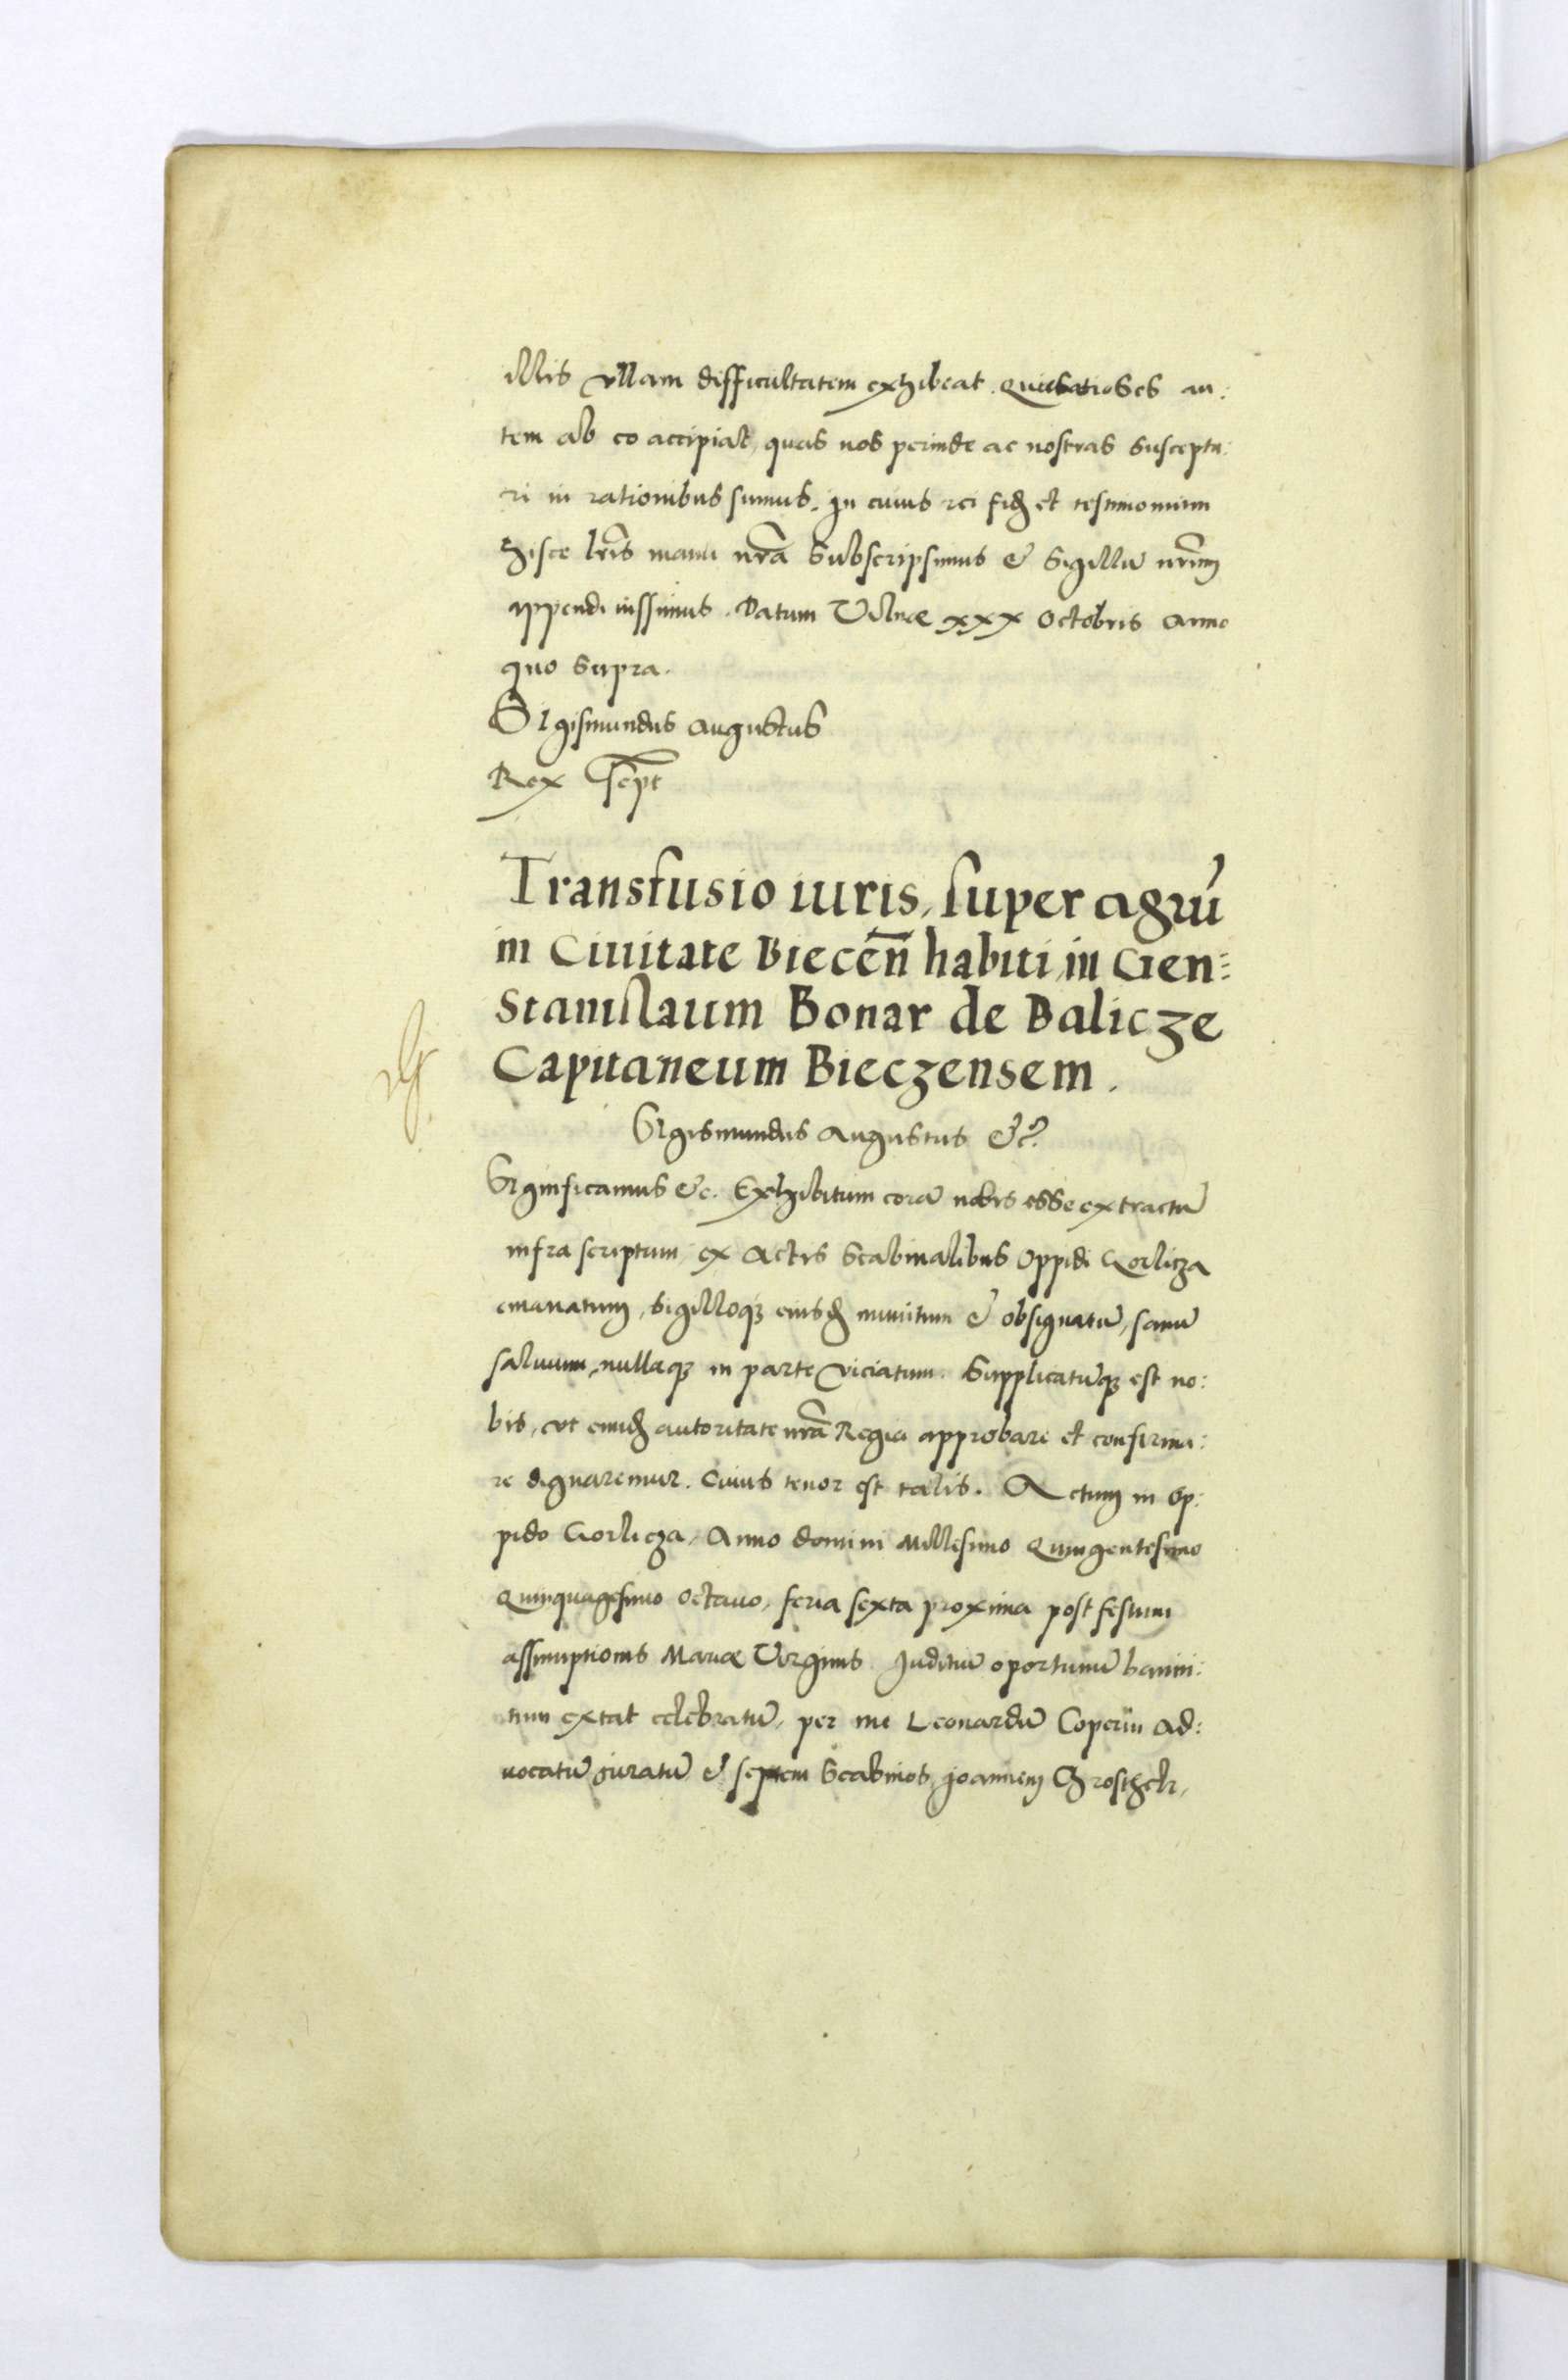 illis vllam difficultatem exhibeat. Quietationes au:
tem ab eo accipiat, quas nos perinde ac nostras susceptu:
ri in rationibus sumus. In cuius rei fidẽ et testimonium
hisce lr̃is manu nr̃a subscripsimus & Sigillũ nr̃um
appendi iussimus. Datum Vilnæ xxx Octobris Anno
quo supra.
Sigismundus Augustus
Rex sc̃pt
Transfusio iuris, super agrũ
in Ciuitate Biecen̄ habiti, in Gen:
Stanislaum Bonar de Balicze
Capitaneum Bieczensem.
Sigismundus Augustus &c.
Significamus &c. Exhibitum corã nobis esse extractũ
infra scriptum, ex Actis Scabinalibus Oppidi Gorlicza
emanatum, Sigilloqȝ eiusdẽ munitum & obsignatũ, sanũ
saluum, nullaqȝ in parte viciatum. Supplicatũqȝ est no:
bis, vt eundẽ autoritate nr̃a Regia approbare et confirma:
re dignaremur. Cuius tenor est talis. Actum in Op:
pido Gorlicza, Anno domini Millesimo Quingentesimo
Quinquagesimo octauo, feria sexta proxima post festum
assumptionis Mariæ Virginis. Juditiũ oportunũ banni:
tum extat celebratũ, per me Leonardũ Coperin Ad:
uocatũ iuratũ & septem Scabinos, Joannem